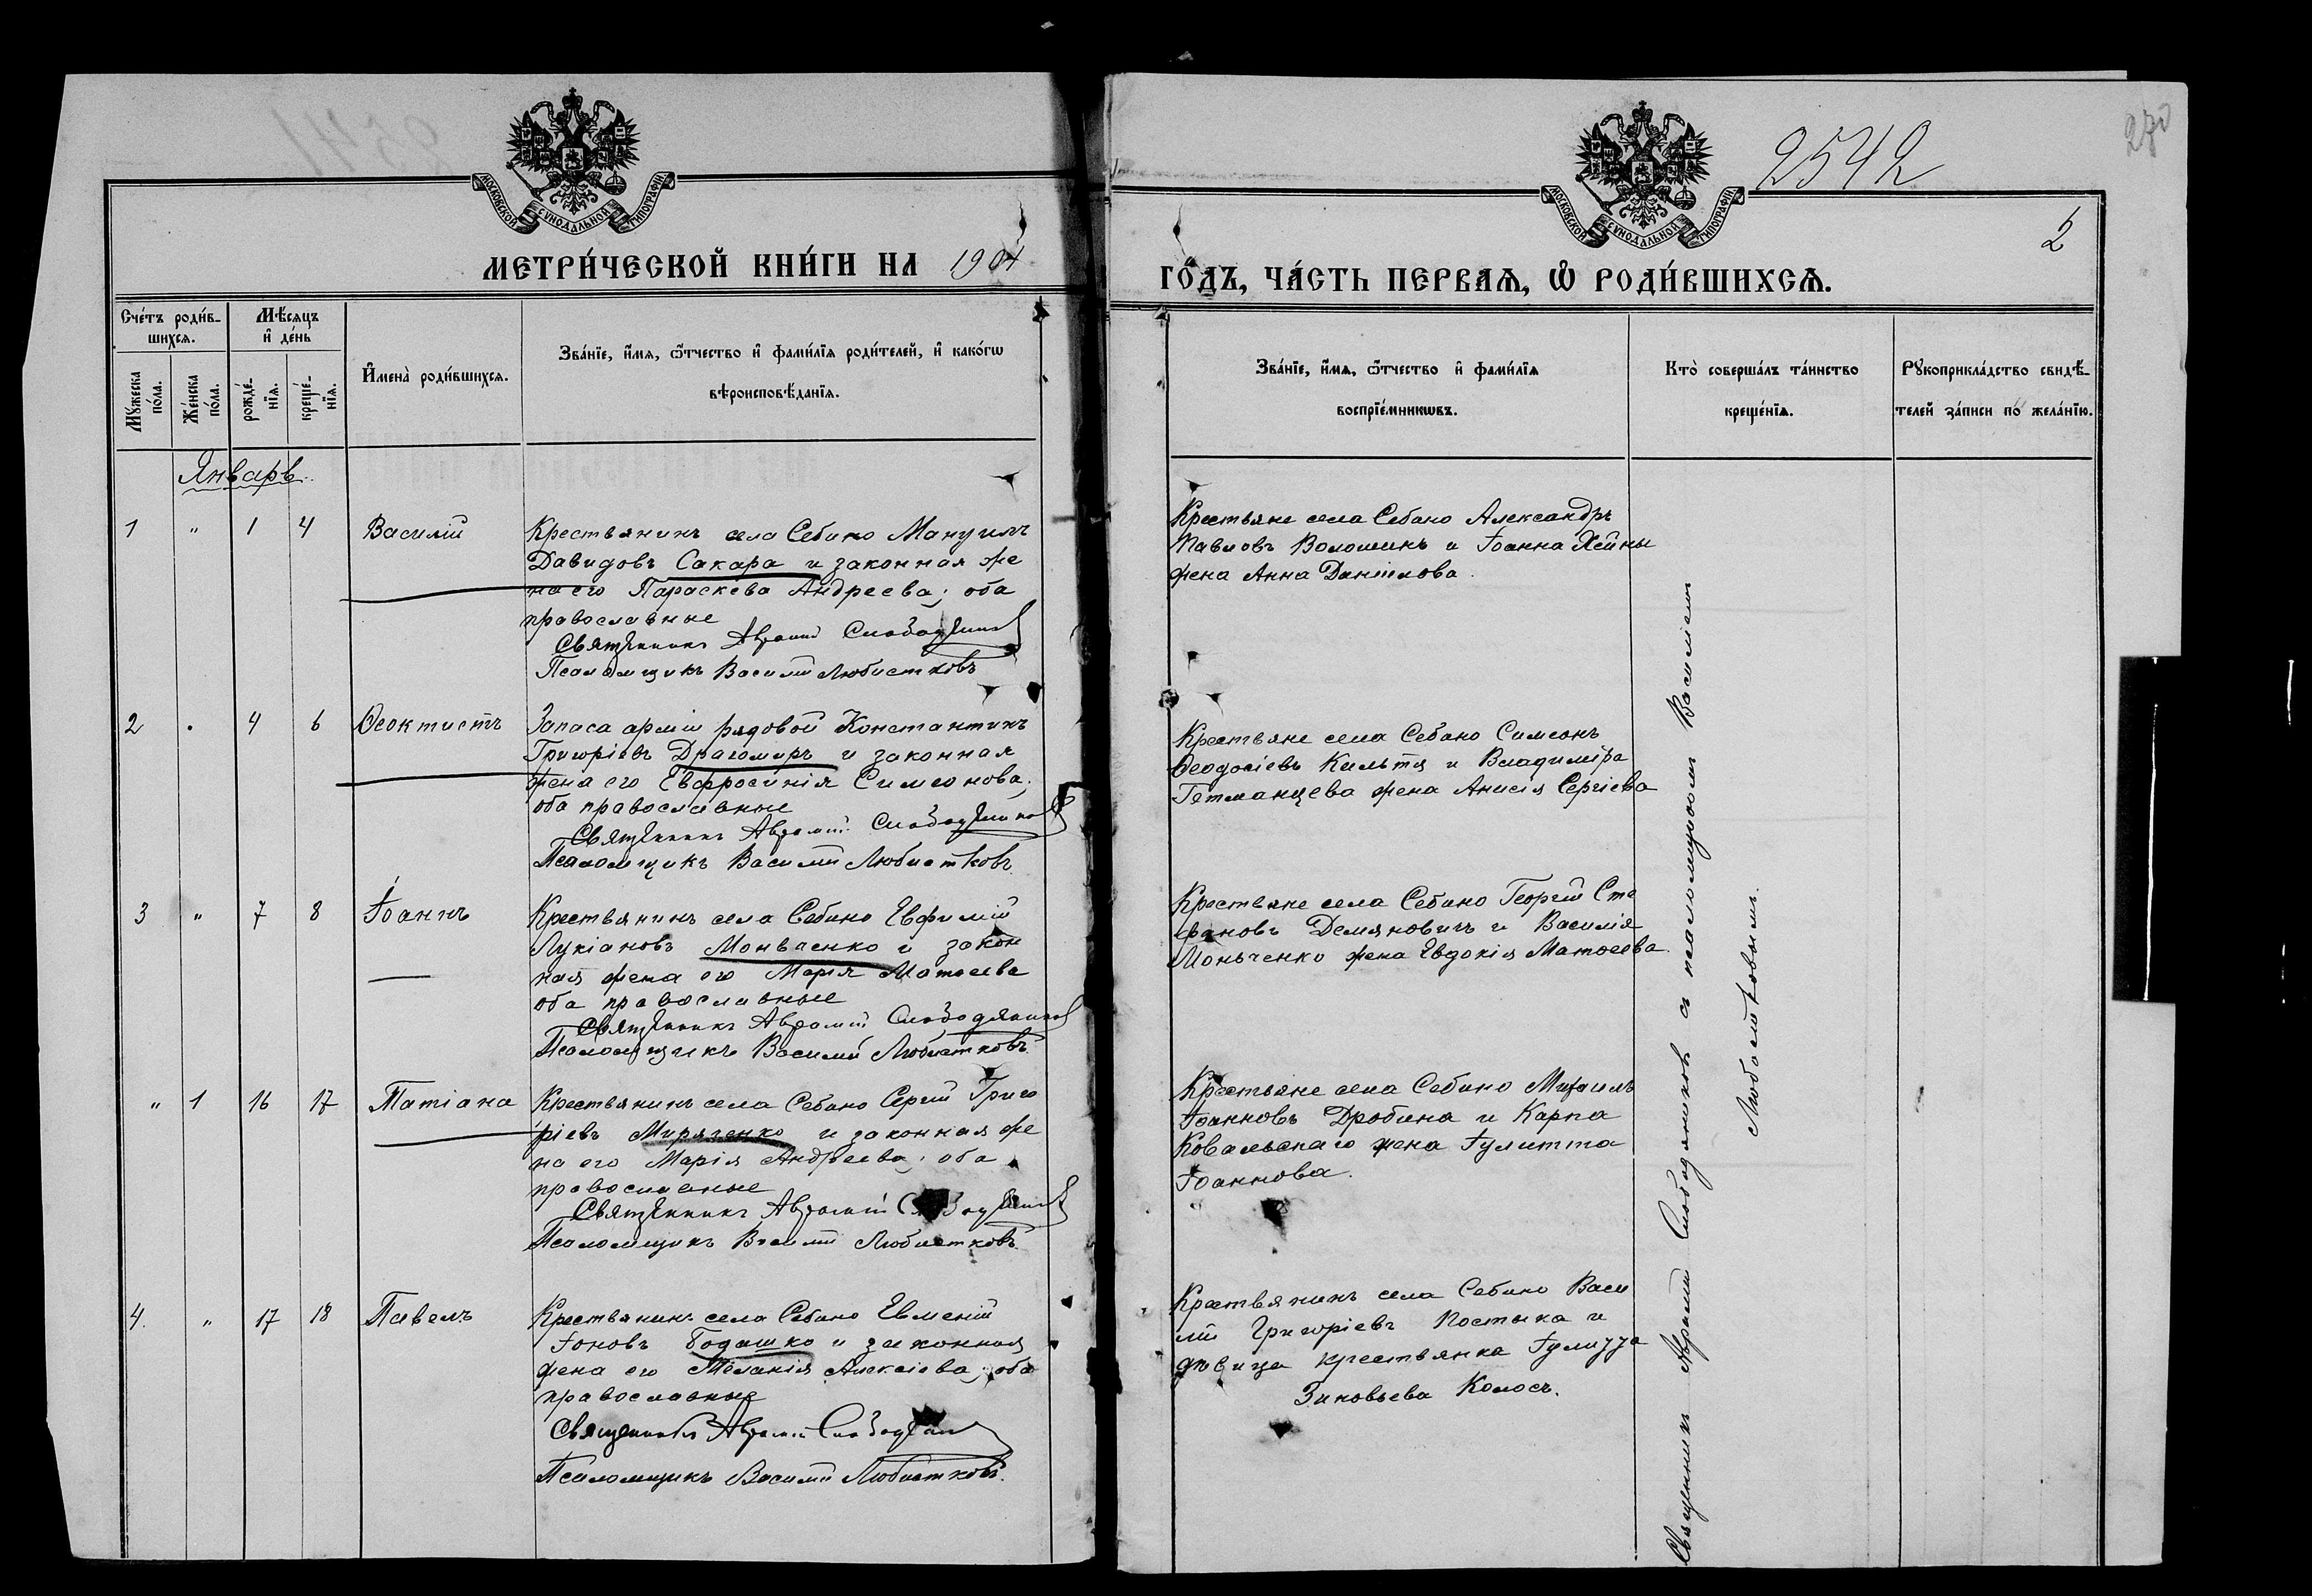 2542
270
2
МОСКОВСКОЙ СУНОДАЛЬНОЙ ТИПОГРАФІИ
МОСКОВСКОЙ СУНОДАЛЬНОЙ ТИПОГРАФІИ
МЕТРИ́ЧЕСКОЙ КНИ́ГИ НА 1904
ГО́ДЪ, ЧА́СТЬ ПЕРВАѦ, Ѡ РОДИ́ВШИХСѦ.
Сче́тъ роди́в-
шихсѧ.
Мꙋ́жеска по́ла.
Же́нска по́ла.
Мѣ́сѧцъ
и҆ де́нь
рожде́-
нїѧ.
креще́-
нїѧ.
И҆мена̀ роди́вшихсѧ.
Зва́нїе, и҆́мѧ, ѻ҆́тчество и҆ фами́лїѧ роди́телей, и҆ како́гѡ
вѣроисповѣ́данїѧ.
Зва́нїе, и҆́мѧ, ѻ҆́тчество и҆ фами́лїѧ
воспрїе́мникѡвъ.
Кто̀ соверша́лъ та́инство
креще́нїѧ.
Рꙋкоприкла́дство свидѣ́-
телей за́писи по жела́нїю.
Январь
1 " 1 4 Василій
Крестьянинъ села Себино Мануилъ
Давидовъ Сакара и законная же
на его Параскева Андреева; оба
православные
Священникъ Аврамій Слободяников
Псаломщикъ Василій Любистковъ
Крестьяне села Себино Александръ
Павловъ Волошинъ и Іоанна
жена Анна Даниілова.
2 " 4 6 Ѳеоктистъ
Запаса арміи рядовой Константинъ
Григоріевъ Драгомиръ и законная
жена его Евфросинія Симеонова;
оба православные
Священникъ Аврамій Слободяников
Псаломщикъ Василій Любистковъ.
Крестьяне села Себино Симеонъ
Ѳеодосіевъ Кильтя и Владиміра
Гетманцева жена Анисія Сергіева
3 " 7 8 Іоаннъ
Крестьянинъ села Себино Евфимій
Лукіановъ и закон
ная жена его Марія Матѳеева
оба православные
Священникъ Аврамій Слободяников
Псаломщикъ Василій Любистковъ.
Крестьяне села Себино Георгій Сте
фановъ Демяновичъ и Василія
Моньченко жена Евдокія Матѳеева
" 1 16 17 Татіана
Крестьянинъ села Себино Сергій Григо
ріевъ Миряченко и законная же
на его Марія Андреева; оба
православные
Священникъ Аврамій Слободяников
Псаломщикъ Василій Любистковъ.
Крестьяне села Себино Михаилъ
Іоанновъ Дробина и Карпа
Ковальскаго жена Іулитта
Іоаннова.
4. " 17 18 Павелъ
Крестьянинъ села Себино Евменій
Іоновъ Бодашко и законная
жена его Меланія Алексіева; оба
православные
Священникъ Аврамій Слободяников
Псаломщикъ Василій Любистковъ.
Крестьянинъ села Себино Васи
лій Григоріевъ Костыка и
дѣвица крестьянка
Зиновьева Колосъ.
Священникъ Аврамій Слободяниковъ съ псаломщикомъ Василіемъ
Любистковымъ.